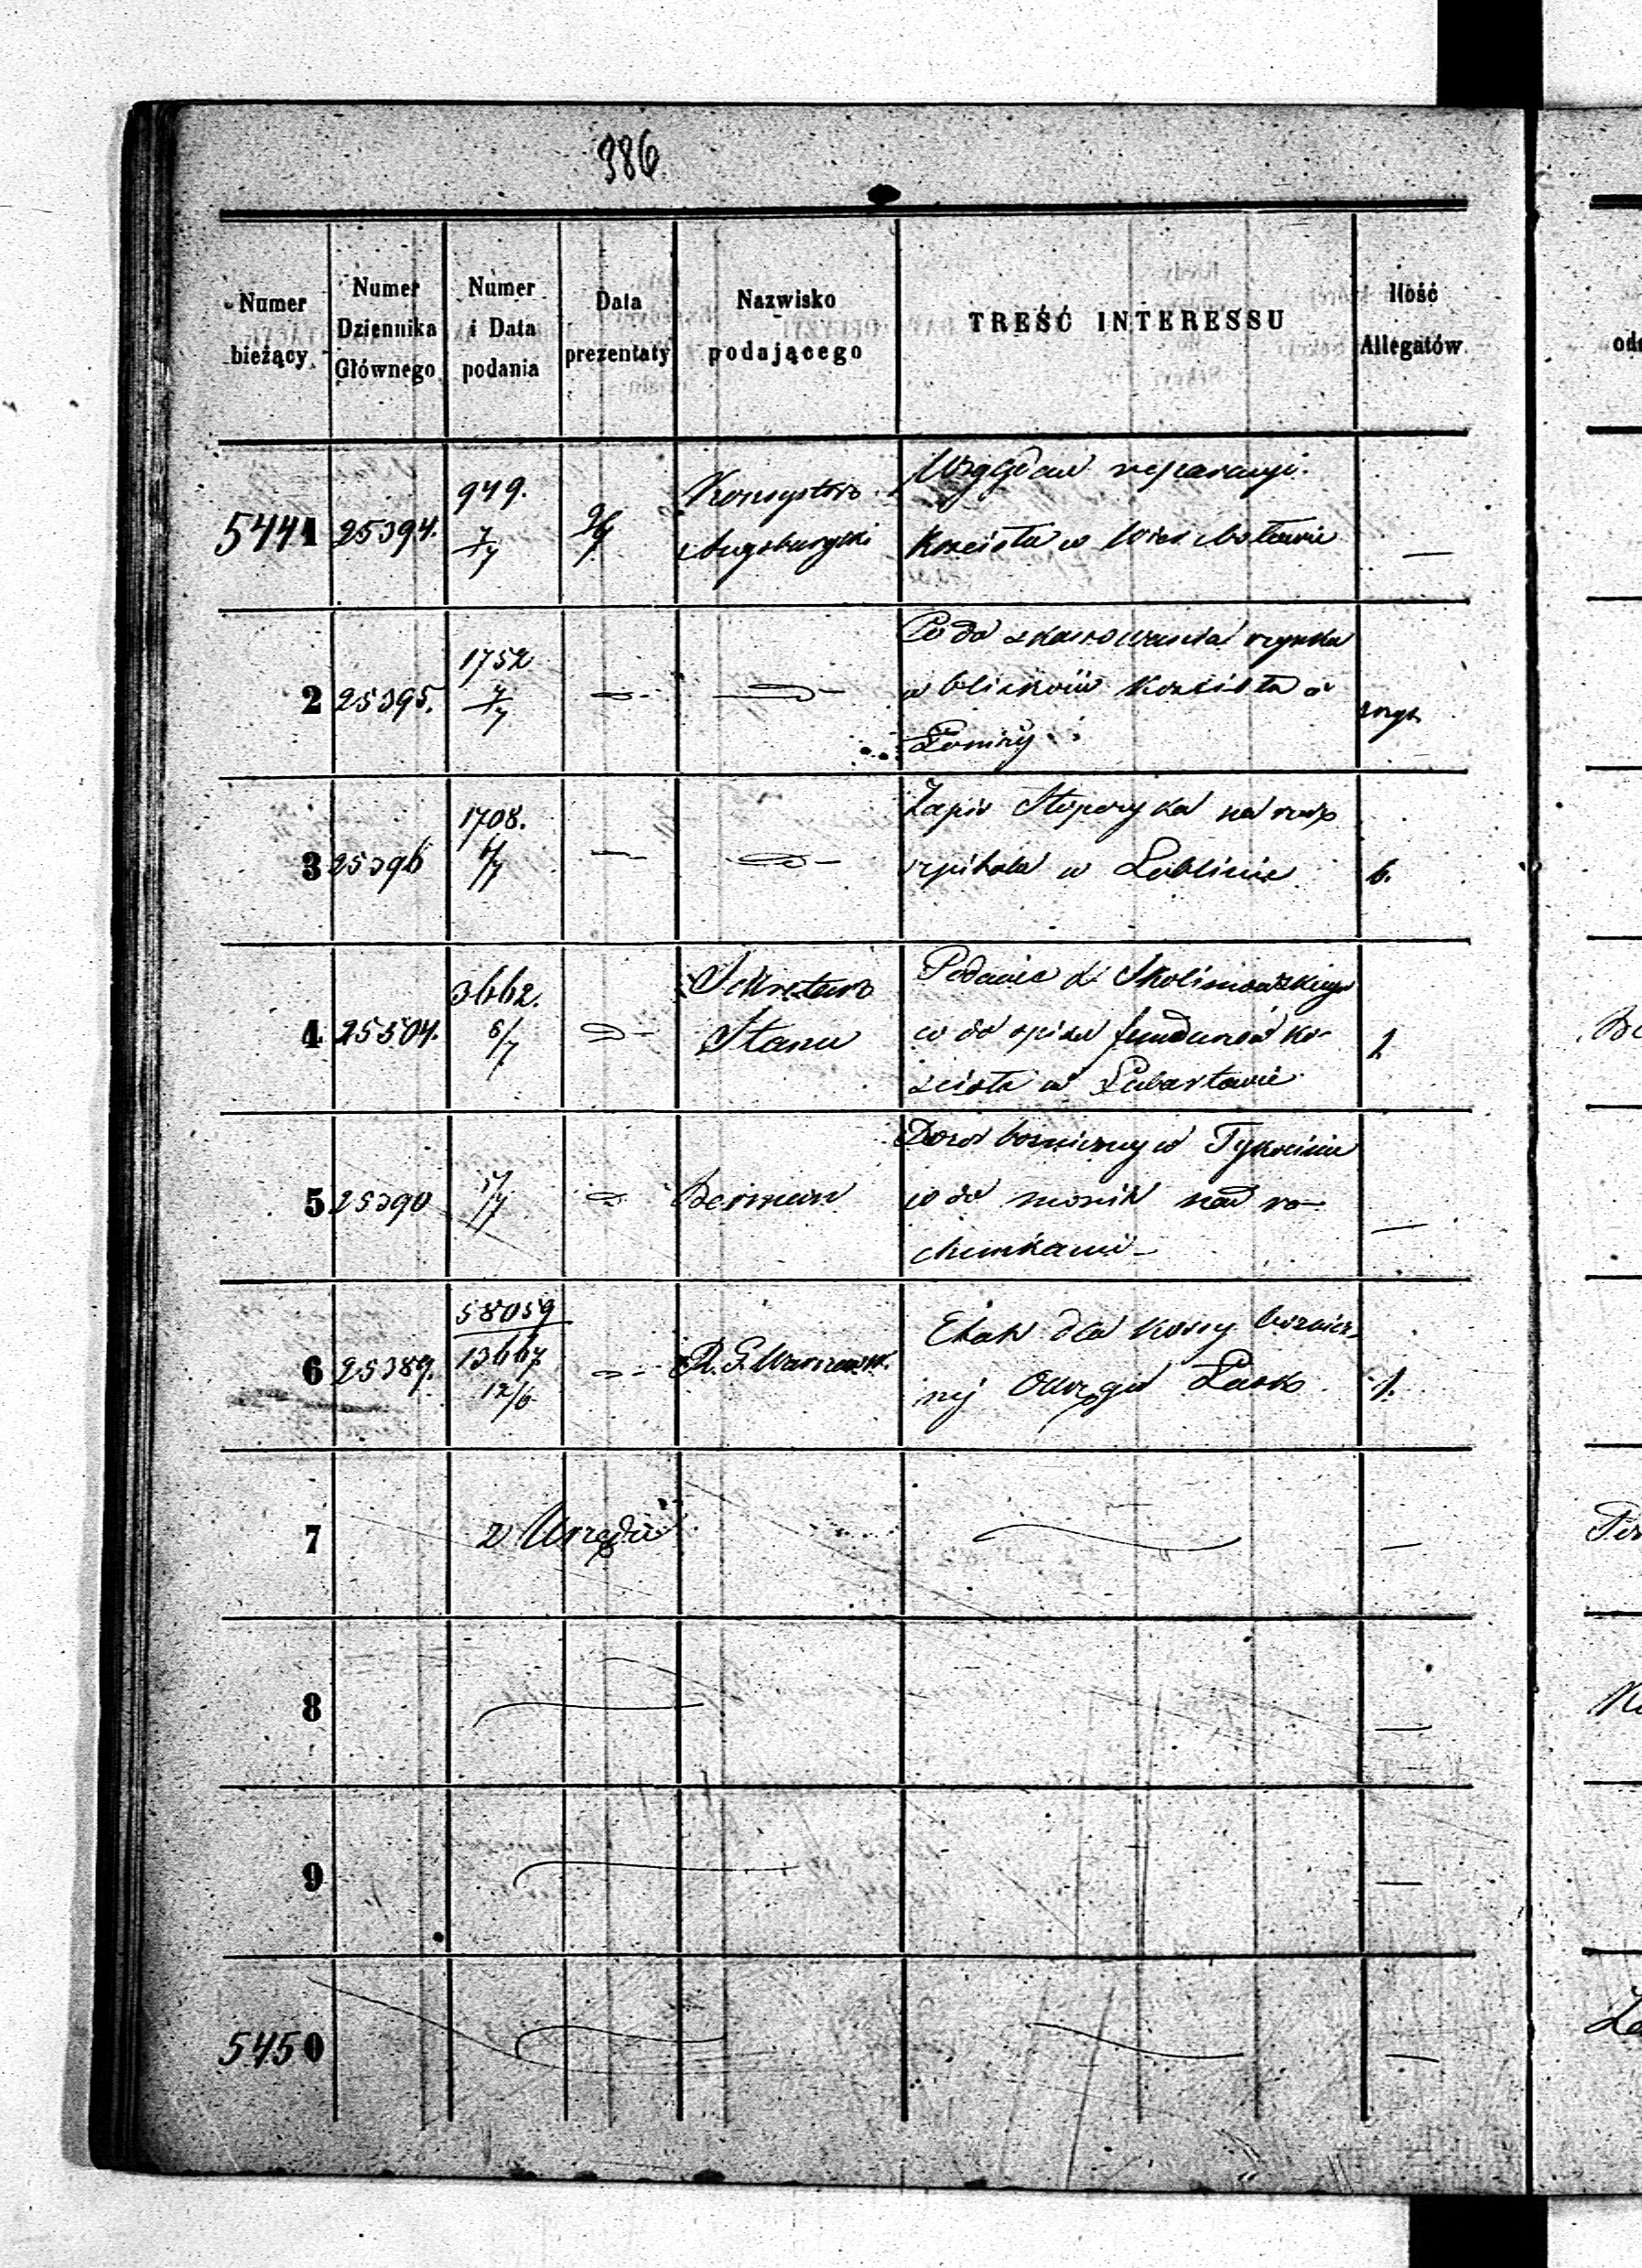 386
Numer bieżący
Numer Dziennika Głównego
Numer i Data podania
Data prezentaty
Nazwisko podającego
TREŚĆ INTERESSU
Ilość Allegatów
5441 25394. 949. 7/7 9/7 Konsystorz Augsburgski
Względem reparacyi
Kościoła w
—
2 25395. 1752 7/7
w do skassowania rynku
w bliskości Kościoła w
Łomży
3 25396 1708. 6/7
Zapis na rzecz
szpitala w Lublinie
6.
4 25504. 3662. 6/7 Sekretarz Stanu
Podanie X Skolimowskiego
w do opisu funduszów ko-
ścioła w Lubartowie
1
5 25390 7/7 Berman
Dozór bożniczny w Tykocinie
w do nad ra-
chunkami
—
6 25389. 58059 13667 12/6 R. G. Warszawsk.
Etat dla kassy bożnicz-
nej Okręgu Łask
1.
7 z Urzędu —
8 —
9 —
5450 —